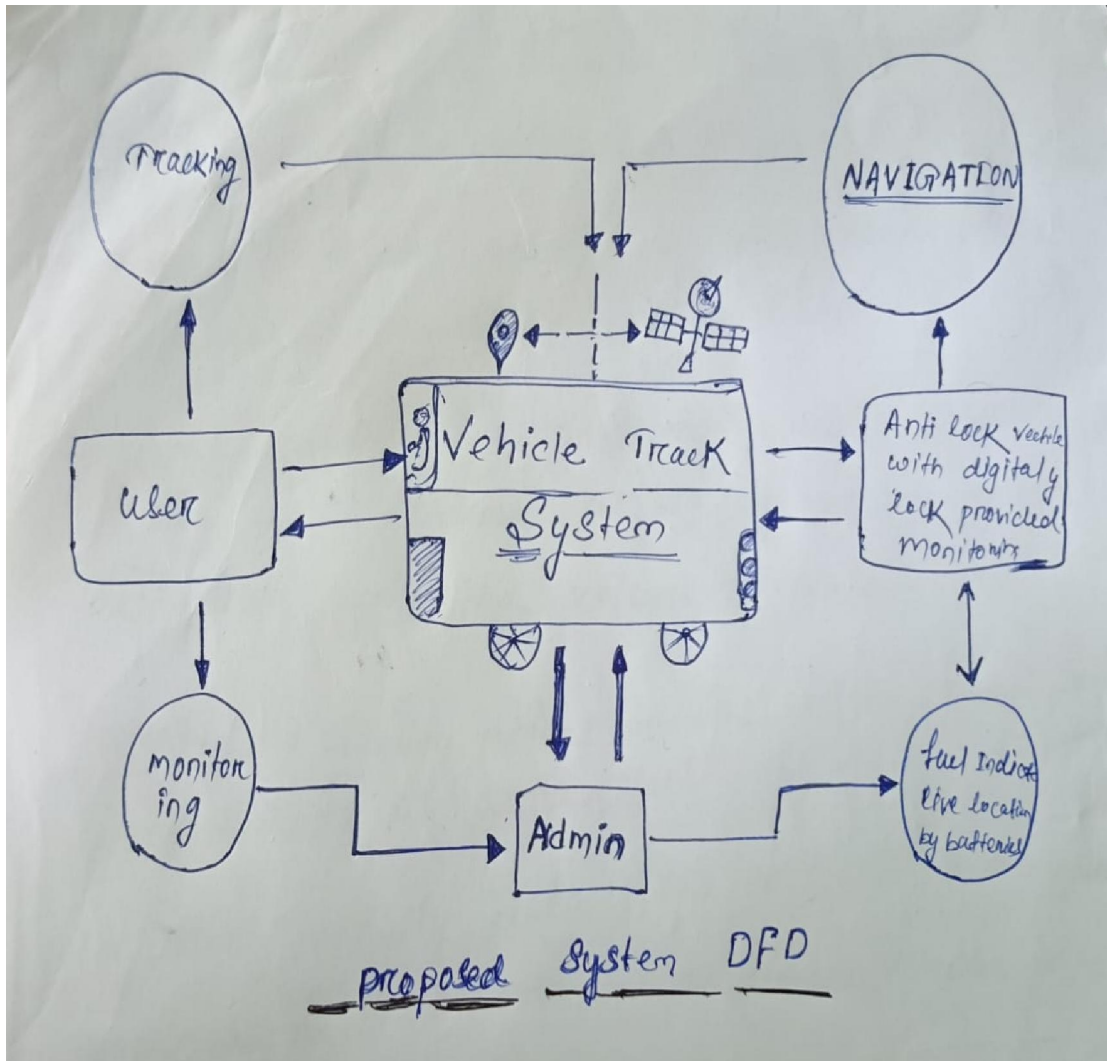 Tracking
NAVIGATION
Vehicle Track
System
User
Anti lock vechile
with digitaly
lock provided
monitoring
monitor
ing
Admin
fuel Indicate
live location
by batteries
proposed System DFD